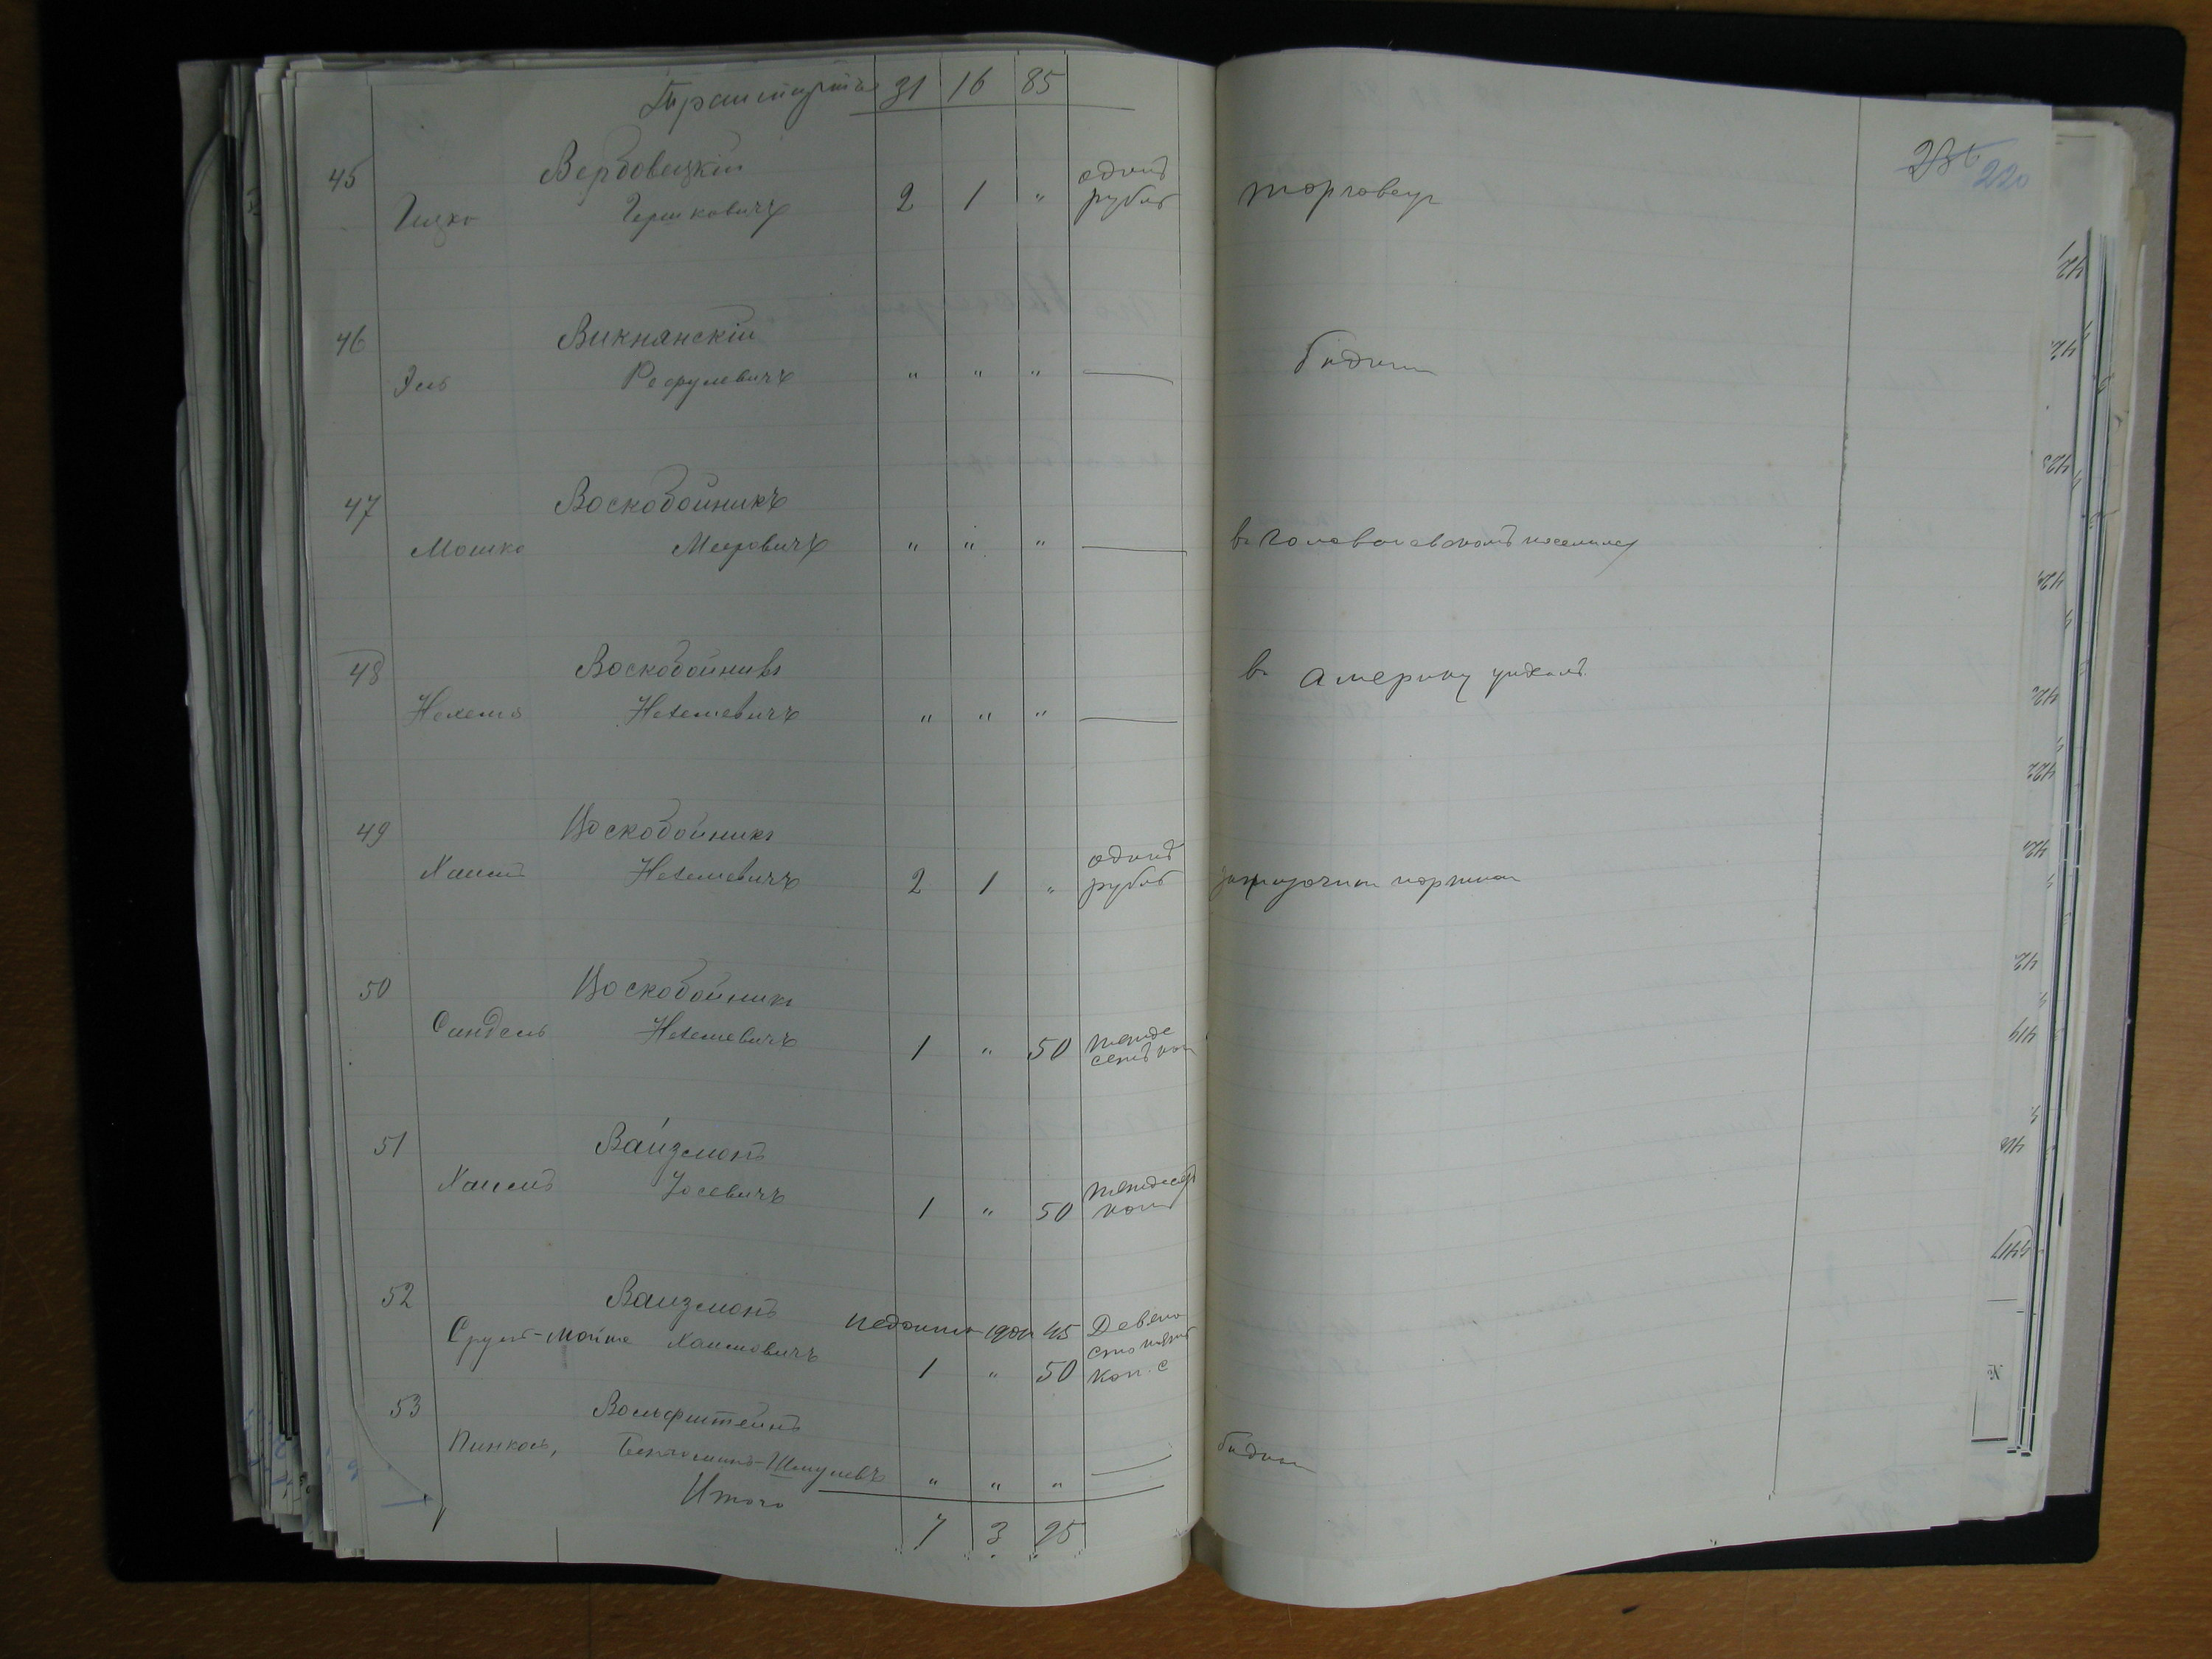 Транспортъ 31 16 85
45 Вербовецкій
Гершковичъ 2 1 " одинъ рубль торговецъ
46 Викнянскій
Эль Рефулевичъ " " " — бѣдный
47 Воскобойникъ
Мошко Мееровичъ " " " — въ
48 Воскобойникъ
Нехемъ Нехемевичъ " " " — въ Америку уѣхалъ
49 Воскобойникъ
Хаимъ Нехемевичъ 2 1 " одинъ рубль
50 Воскобойникъ
Сендель Нехемевичъ 1 " 50 пятьдесятъ коп
51 Вайзмонъ
Хаимъ Іосевичъ 1 " 50 пятьдесятъ коп
52 Вайзмонъ
Сруль-Мойше Хаимовичъ недоимка 1901 45 Девяносто пять
1 " 50 коп. с
53 Вольфштейнъ
Пинкось, Беньоминъ-Шмулевъ " " " — бѣдный
Итого 7 3 95
220